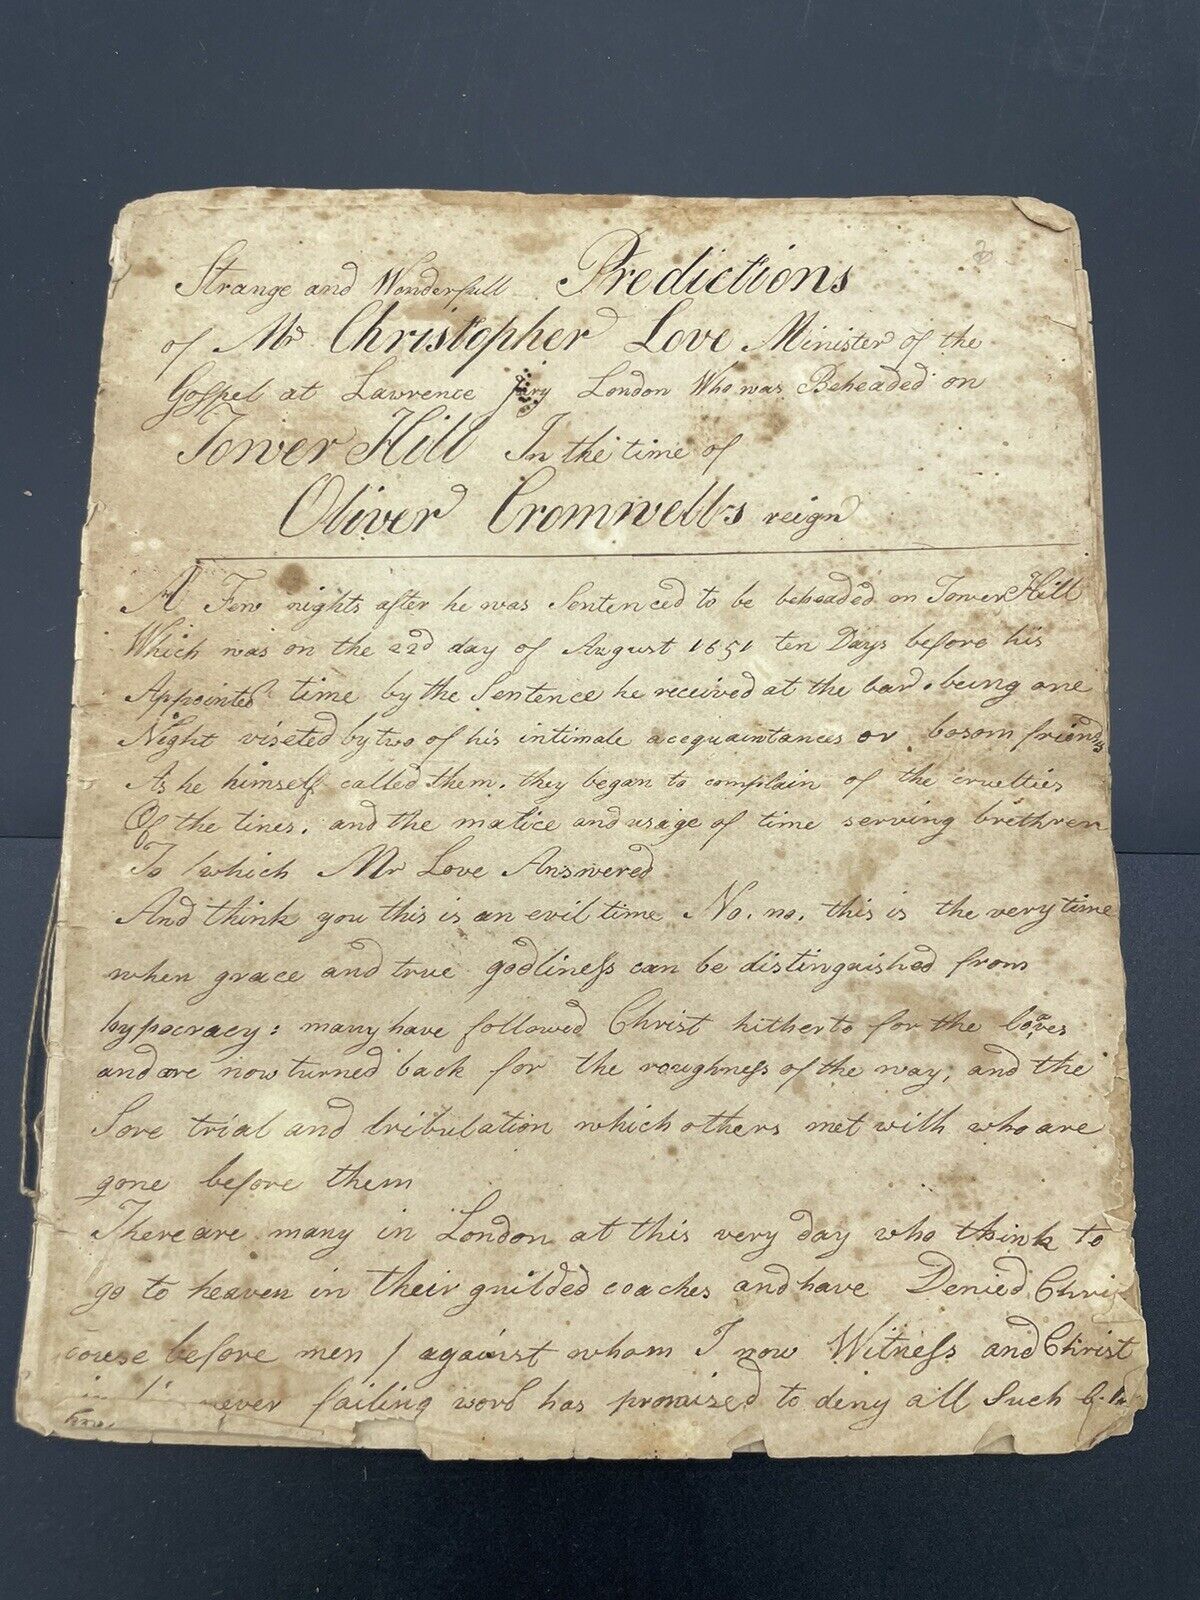 Strange and Wonderfull Predictions
of Mr. Christopher Love Minister of the
Gospel at Lawrence Jury London Who was Beheaded on
Tower Hill In the time of
Oliver Cromwells reign
A Few nights after he was Sentenced to be beheaded on Tower Hill
Which was on the 22d day of August 1651 ten Days before his
Appointed time by the Sentence he received at the bar. being one
Night viseted by two of his intimale acequaintances or bosom friends
As he himself called them. they began to complain of the cruelties
Of the tines. and the malice and usage of time serving brethren
To which Mr Love Answered
And think you this is an evil time No. no. this is the very time
when grace and true godliness can be distinguished from
hypocracy: many have followed Christ hitherto for the loves
and are now turned back for the roughness of the way, and the
Sore trial and tribulation which others met with who are
gone before them
There are many in London at this very day who think to
go to heaven in their guilded coaches and have Denied Chris
couse before men / against whom I now Witness and Christ
never failing word has promised to deny all Such